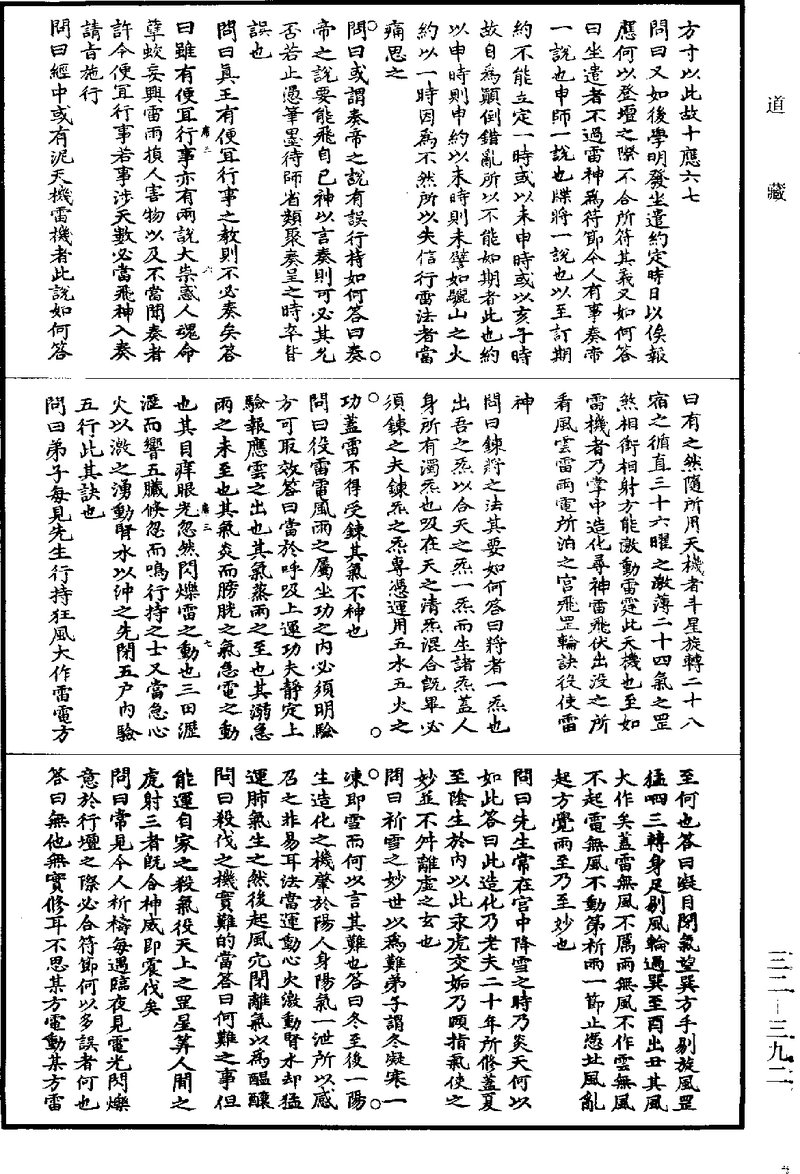 道藏
方寸以此故十應六七
問曰又如後學明發坐遣約定時日以俟報
應何以登壇之際不合所符其義又如何答
曰坐遣者不過雷神為符節今人有事奏帝
一說也申師一說也牒將一說也以至訂期
約不能立定一時或以未申時或以亥子時
故自為顛倒錯亂所以不能如期者此也約
以申時則申約以未時則未譬如驪山之火
約以一時因為不然所以失信行雷法者當
痛思之
問曰或謂奏帝之說有誤行持如何答曰奏
帝之說要能飛自己神以言奏則可必其允
否若止憑筆墨待師省類聚奏呈之時卒皆
誤也
問曰真王有便宜行事之教則不必奏矣答
曰雖有便宜行事亦有兩說大祟惑人魂命
孽蛟妄興雷雨損人害物以及不當聞奏者
許令便宜行事若事涉天數必當飛神入奏
請旨施行
問曰經中或有泥天機雷機者此說如何答
曰有之然隨所用天機者斗星旋轉二十八
宿之循直三十六曜之激薄二十四氣之罡
煞相衝相射方能激動雷霆此天機也至如
雷機者乃掌中造化尋神雷飛伏出沒之所
看風雲雷雨電所泊之宮飛罡輪訣役使雷
神
問曰鍊將之法其要如何答曰將者一炁也
出吾之炁以合天之炁一炁而生諸炁蓋人
身所有濁炁也吸在天之清炁混合既畢必
須鍊之夫鍊炁之炁專憑運用五水五火之
功蓋雷不得受鍊其氣不神也
問曰役雷電風雨之屬坐功之內必須明驗
方可取效答曰當於呼吸上運功夫靜定上
驗報應雲之出也其氣蒸雨之至也其溺急
雨之未至也其氣炎而膀胱之氣急電之動
也其目痒眼光忽然閃爍雷之動也三田瀝
瀝而響五臟倏忽而鳴行持之士又當急心
火以激之湧動腎水以沖之先閉五户內驗
五行此其訣也
問曰弟子每見先生行持狂風大作雷電方
至何也答曰凝目閉氣望巽方手剔旋風罡
猛呬三轉身足剔風輪過巽至酉出丑其風
大作矣蓋雷無風不厲雨無風不作雲無風
不起電無風不動第祈雨一節止憑北風亂
起方覺雨至乃至妙也
問曰先生常在宮中降雪之時乃炎天何以
如此答曰此造化乃老夫二十年所修蓋夏
至陰生於內以此汞虎交姤乃頤指氣使之
妙並不舛離虛之玄也
問曰祈雪之妙世以為難弟子謂冬凝寒一
凍即雪而何以言其難也答曰冬至後一陽
生造化之機肇於陽人身陽氣一泄所以感
召之非易耳法當運動心火激動腎水却猛
運肺氣生之然後起風穴閉離氣以為醞釀
問曰殺伐之機實難的當答曰何難之事但
能運自家之殺氣役天上之罡星筭人間之
虎射三者既合神威即震伐矣
問曰常見今人祈檮每遇臨夜見電光閃爍
意於行壇之際必合符節何以多誤者何也
答曰無他無實修耳不思某方電動某方雷
三二-三九二